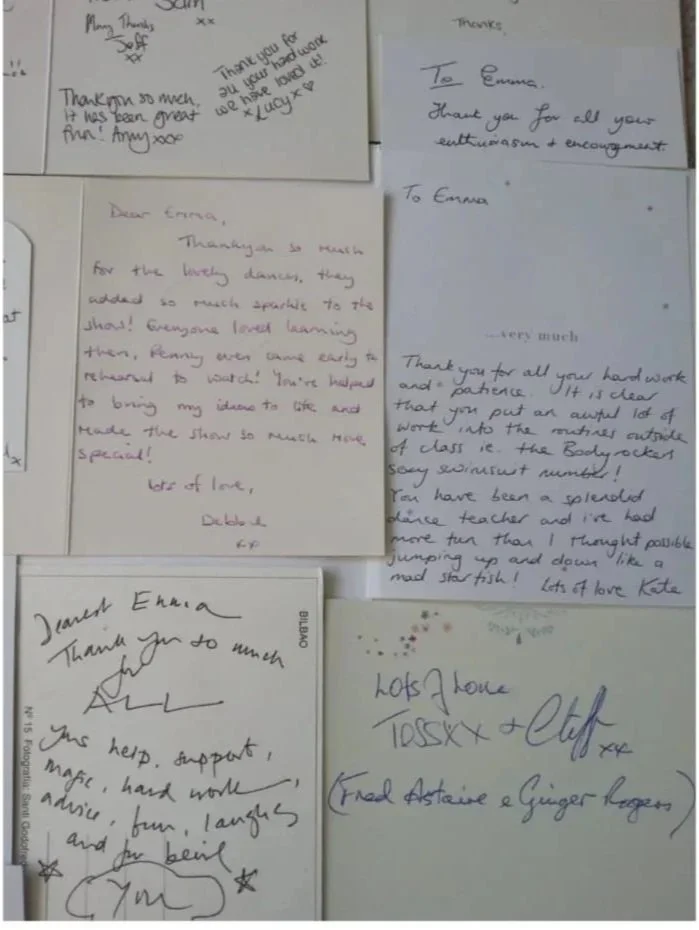 Sam
xx
Many Thanks
Jeff
xx
Thank you for
all your hard work
we have loved it!
x Lucy x
Thankyou so much.
It has been great
fun! Amy xxx
Thanks.
To Emma.
Thank you for all your
enthusiasm + encouragement.
at
x
Dear Emma,
Thankyou so much
for the lovely dances, they
added so much sparkle to the
show! Everyone loved learning
them, Penny even came early to
rehearsal to watch! You've helped
to bring my ideas to life and
made the show so much more
special!
Lots of love,
Debbie
xx
To Emma
...very much
Thank you for all your hard work
and patience. It is clear
that you put an awful lot of
work into the routines outside
of class ie. the Bodyrockers
sexy swimsuit number!
You have been a splendid
dance teacher and i've had
more fun than I thought possible
jumping up and down like a
mad starfish! Lots of love Kate
Dearest Emma
Thank you so much
for
ALL
your help, support,
magic, hard work,
advice, fun, laughs
and for being
You
BILBAO
Nº 15 Fotografía: Santi
Lots of love
TOSSXX + Cliff xx
(Fred Astaire e Ginger Rogers)